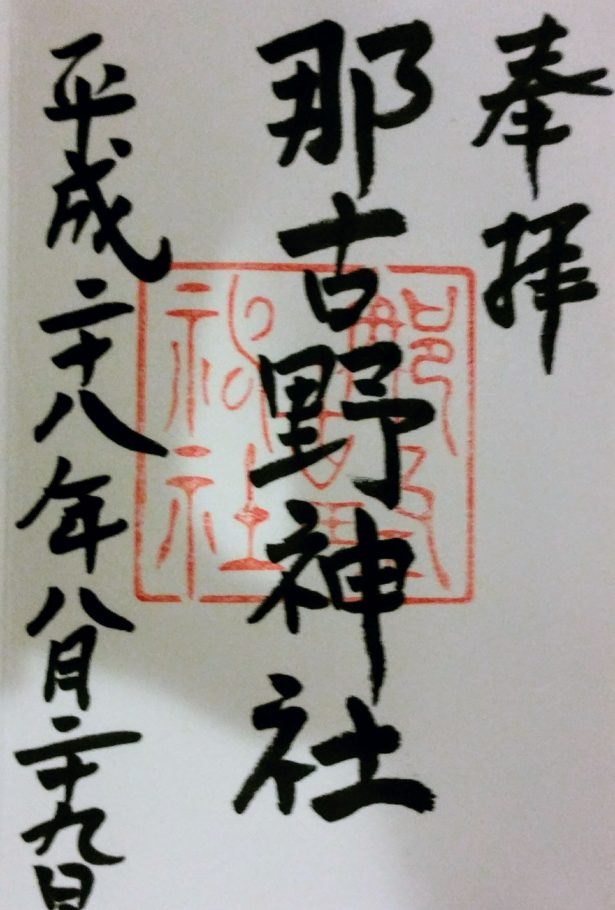 奉拝
那古野神社
平成二十八年八月二十九日